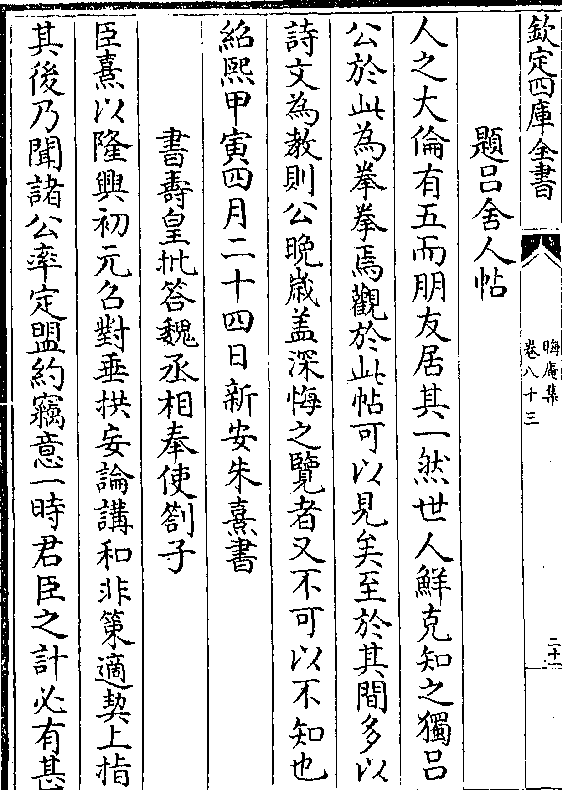 欽定四庫全書
晦庵集
卷八十三
二十
題呂舍人帖
人之大倫有五而朋友居其一然世人鮮克知之獨呂
公於此為拳拳焉觀於此帖可以見矣至於其間多以
詩文為教則公晚歲盖深悔之覽者又不可以不知也
紹熙甲寅四月二十四日新安朱熹書
書壽皇批答魏丞相奉使劄子
臣熹以隆興初元召對垂拱妄論講和非策適契上指
其後乃聞諸公率定盟約竊意一時君臣之計必有甚